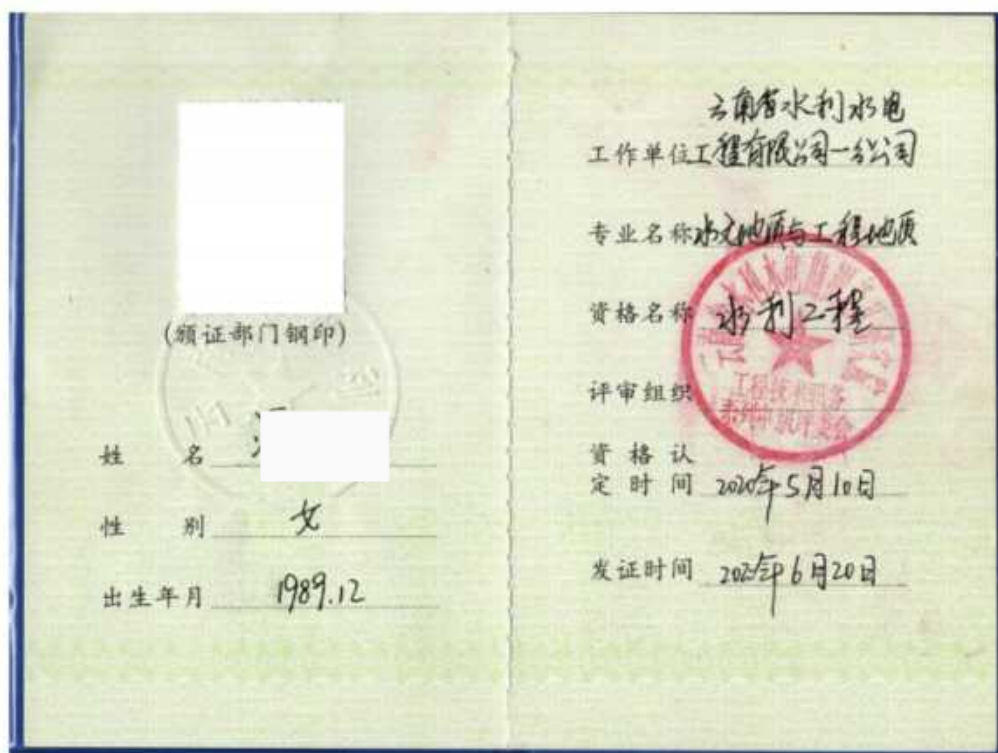 (颁证部门钢印)
姓 名
性 别 女
出生年月 1989.12
云南省水利水电
工作单位工程有限公司一分公司
专业名称水文地质与工程地质
资格名称 水利工程
评审组织
工程技术职务
资格认
定时间 2020年5月10日
发证时间 2020年6月20日